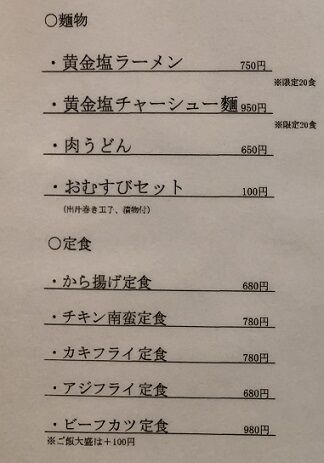 〇麺物
・黄金塩ラーメン 750円
※限定20食
・黄金塩チャーシュー麺 950円
※限定20食
・肉うどん 650円
・おむすびセット 100円
(出汁巻き玉子、漬物付)
〇定食
・から揚げ定食 680円
・チキン南蛮定食 780円
・カキフライ定食 780円
・アジフライ定食 680円
・ビーフカツ定食 980円
※ご飯大盛は＋100円